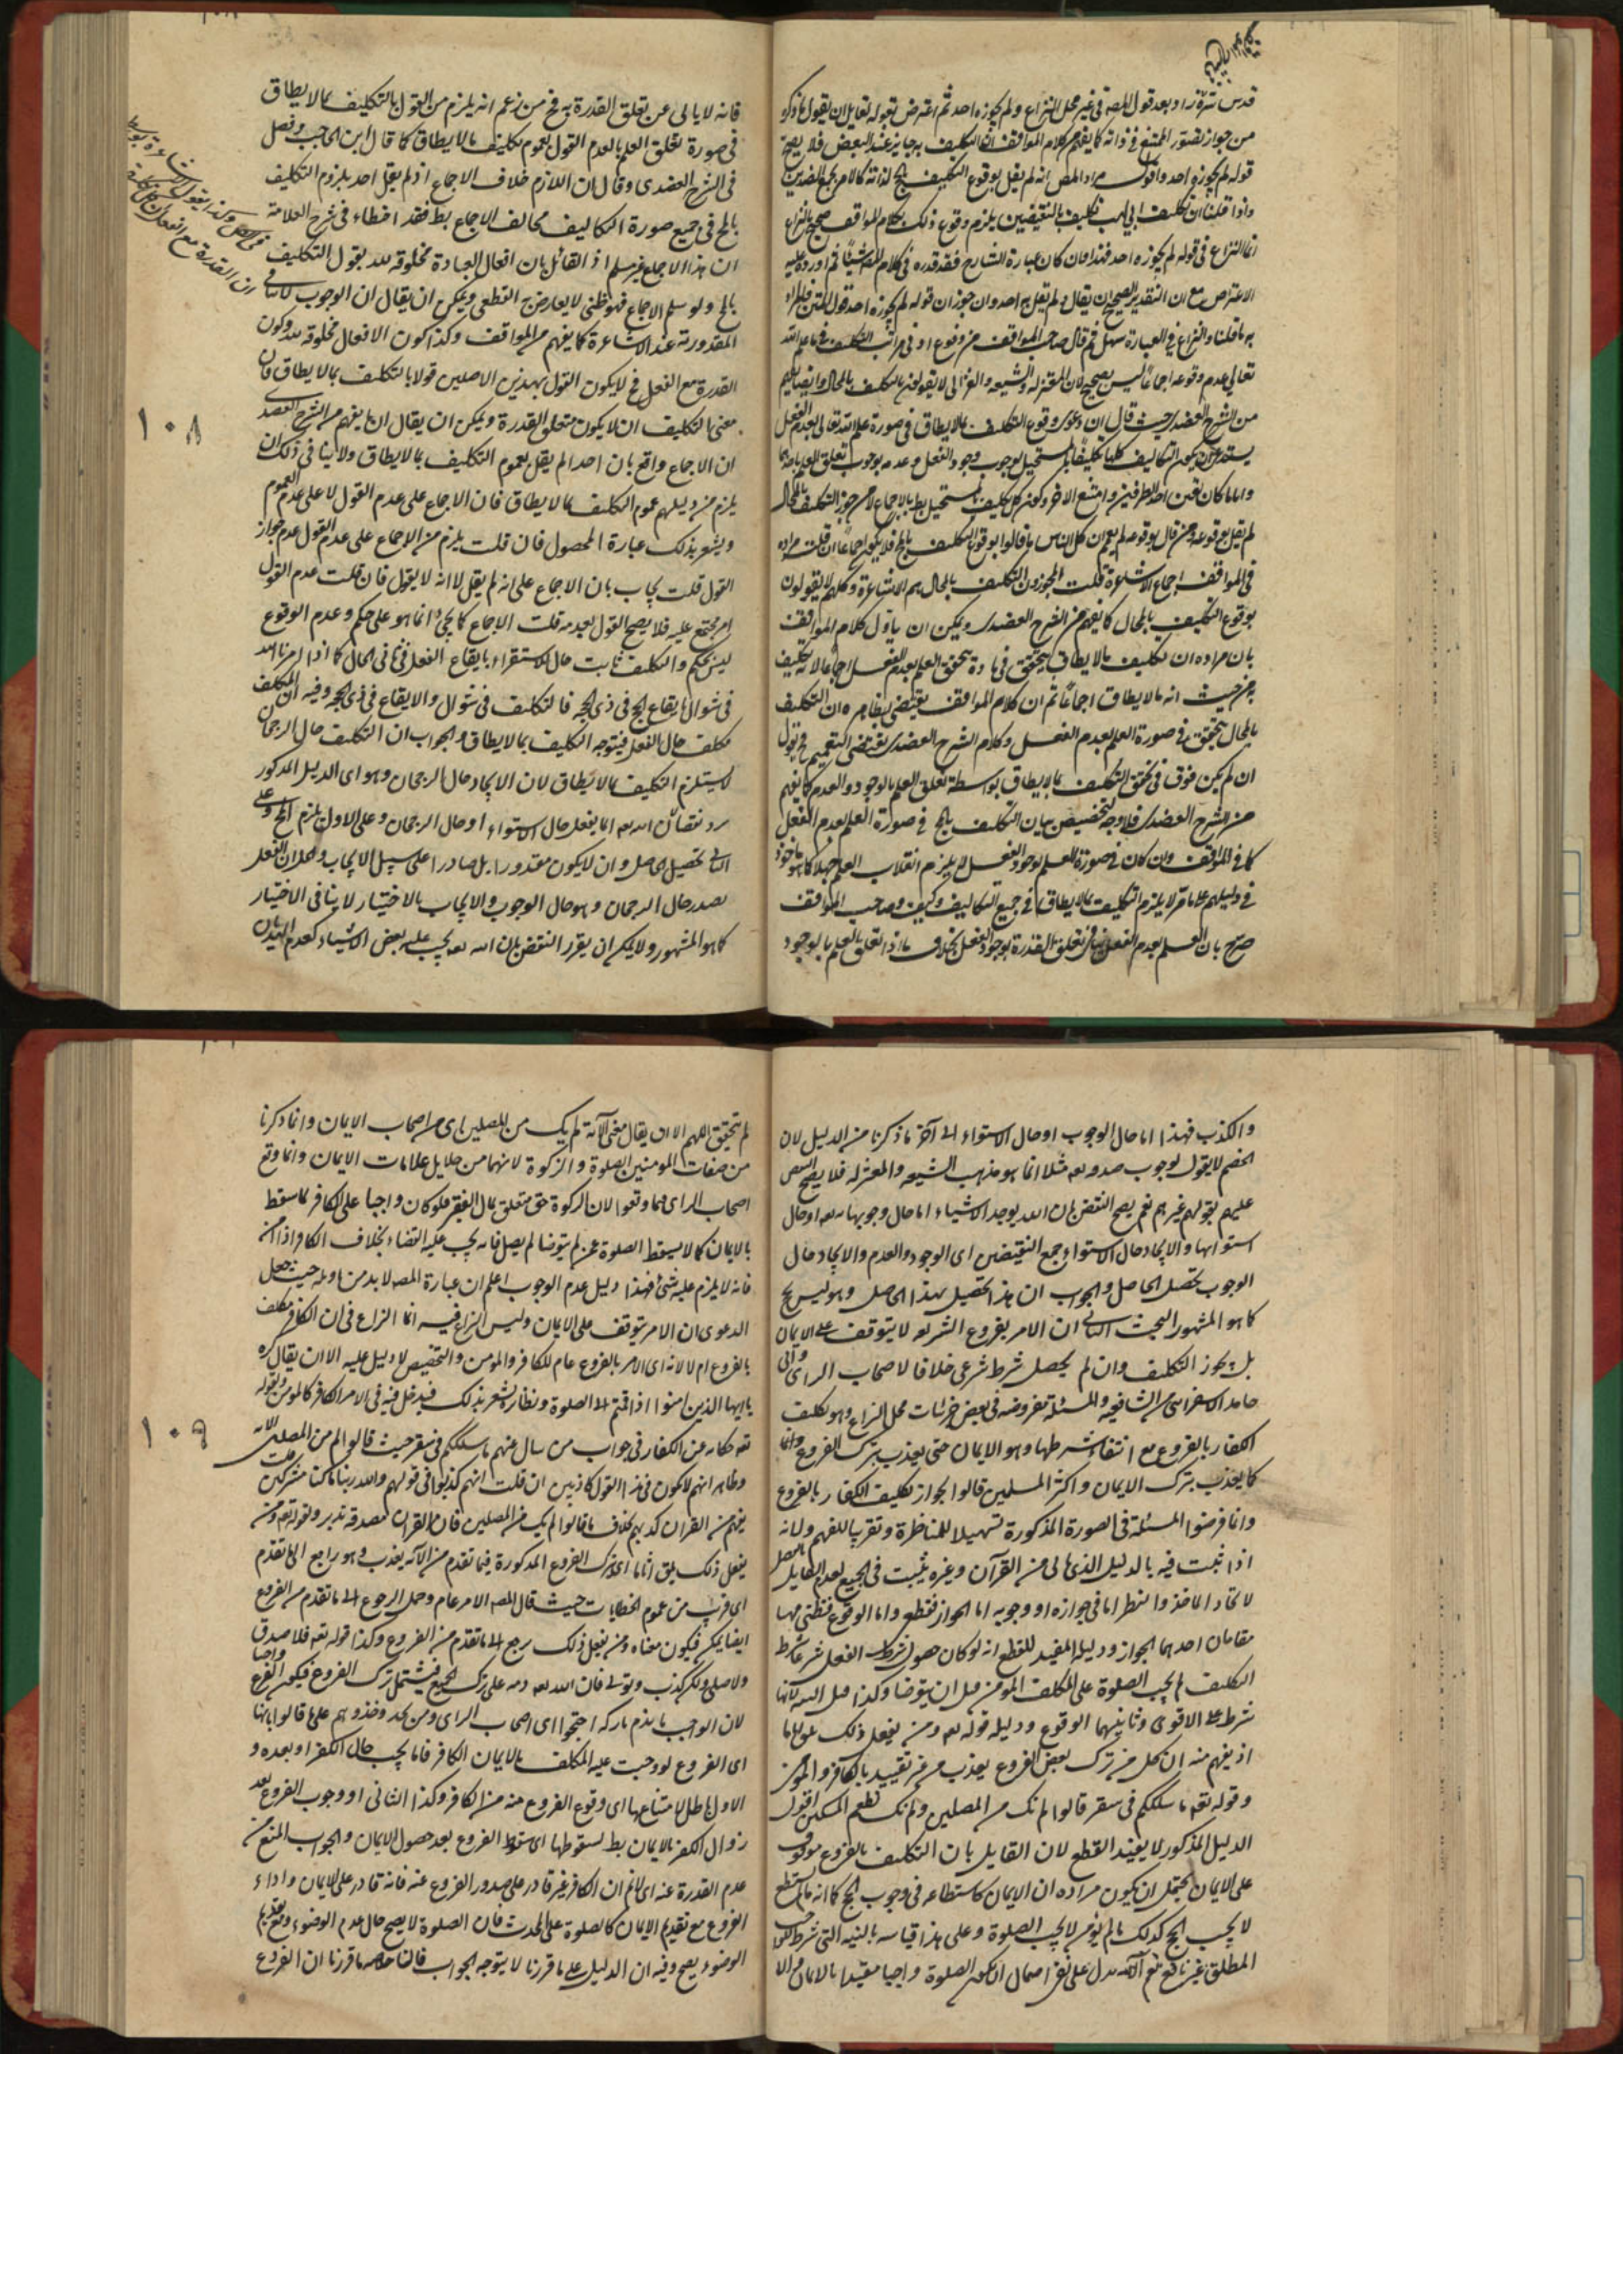 من جواز تصور الممتنع في ذاته كما يفهم من كلام المواقف ان التكليف به جايز عند البعض فلا يصح
قوله لم يجوزه احد واقول مراد المص انه لم يقل بوقوع التكليف بالمح لذاته كالامر بجمع الضدين
واذا قلنا ان تكليف ابي لهب تكليف بالنقيضين يلزم وقوع ذلك كلام المواقف صحيح
به ما قلنا والنزاع في العبارة سهل ثم قال صاحب المواقف
تعالى عدم وقوعه اجماعا ليس بصحيح لان المعتزلة والشيعة والغزالي لا يقولون بالتكليف بالمحال
من الشرح العضدي حيث قال ان دعوى وقوع التكليف بما لا يطاق في صورة علم الله تعالى بعدم الفعل
يستدعي ان يكون التكاليف كلها تكليفا بالمستحيل لوجوب وجود الفعل وعدمه لوجوب تعلق العلم باحدهما
واياما كان تعين احد الطرفين وامتنع الاخر وكون كل تكليف بالمستحيل بط بالاجماع
في المواقف اجماع الاشاعرة قلت المجوزون التكليف بالمحال هم الاشاعرة وكلهم لا يقولون
بوقوع التكليف بالمحال كما يفهم من الشرح العضدي ويمكن ان يأول كلام المواقف
بان مراده ان تكليف ما لا يطاق يتحقق في مادة يتحقق العلم بعدم الفعل اجماعا لا انه تكليف
به من حيث انه ما لا يطاق اجماعا ثم ان كلام المواقف يقتضي بظاهره ان التكليف
بالمحال يتحقق في صورة العلم بعدم الفعل وكلام الشرح العضدي يقتضي التعميم
ان لم يكن فرق في تحقق التكليف بما لا يطاق بواسطة تعلق العلم بالوجود والعدم كما يفهم
من الشرح العضدي فلا وجه لتخصيص بيان التكليف بالمح في صورة العلم بعدم الفعل
كما في المواقف وان كان في صورة العلم بوجود الفعل لا يلزم انقلاب العلم جهلا
في دليلهم على ما مر لا يلزم التكليف بما لا يطاق في جميع التكاليف وكيف وصاحب المواقف
صرح بان العلم بعدم الفعل ينافي تعلق القدرة بوجود الفعل بخلاف ما اذا تعلق العلم بالوجود
فانه لا يابى عن تعلق القدرة به فح من زعم انه يلزم من القول بالتكليف بما لا يطاق
في صورة تعلق العلم بالعدم القول بعموم تكليف ما لا يطاق كما قال ابن الحاجب وفصل
في الشرح العضدي وقال ان اللازم خلاف الاجماع اذ لم يقل احد بلزوم التكليف
بالمح في جميع صورة التكاليف مخالف الاجماع بط فقد اخطاء في شرح العلامة
ان هذا الاجماع غير مسلم اذ القائل بان افعال العباد مخلوقة لله يقول التكليف
بالمح ولو سلم الاجماع فهو ظني لا يعارض القطعي ويمكن ان يقال ان الوجوب لا ينافي
المقدورية عند الاشاعرة كما يفهم من المواقف وكذا كون الافعال مخلوقة لله وكون
القدرة مع الفعل فح لا يكون القول بهذين الاصلين قولا بالتكليف بما لا يطاق فان
معنى التكليف ان لا يكون متعلق القدرة ويمكن ان يقال ان ما يفهم من الشرح العضدي
ان الاجماع واقع بان احدا لم يقل بعموم التكليف بما لا يطاق ولا ينافي ذلك ان
يلزم من دليلهم عموم التكليف بما لا يطاق فان الاجماع على عدم القول لا على عدم العموم
ويشعر بذلك عبارة المحصول فان قلت يلزم من الاجماع على عدم القول عدم جواز
القول قلت يجاب بان الاجماع على انه لم يقل لا انه لا يقول فان قلت عدم القول
امر مجتمع عليه فلا يصح القول بعدمه قلت الاجماع كما يجيء انما هو على حكم وعدم الوقوع
ليس بحكم والتكليف ثابت حال الاستقراء بايقاع الفعل في ثاني الحال كما اذا امرنا الله
في شوال بايقاع الحج في ذي الحجه فالتكليف في شوال والايقاع في ذي الحجه وفيه ان المكلف
مكلف حال الفعل فيتوجه التكليف بما لا يطاق والجواب ان التكليف حال الرجحان
لا يستلزم التكليف بما لا يطاق لان الايجاد حال الرجحان وهو اى الدليل المذكور
يرد نقضا بان الله تعه اما يفعل حال الاستواء او حال الرجحان وعلى الاول يلزم المح وعلى
الثاني تحصيل الحاصل وان لا يكون مقدورا بل صادرا على سبيل الايجاب
يصدر حال الرجحان وهو حال الوجوب والايجاب بالاختيار لا ينافي الاختيار
كما هو المشهور ولا يمكن ان يقرر النقض بان الله تعه يجب عليه بعض الاشياء كعدم
١٠٨
والكذب فهذا اما حال الوجوب او حال الاستواء الى آخر ما ذكرنا من الدليل لان
الخصم لا يقول بوجوب صدقه تعه مثلا انما هو مذهب الشيعة والمعتزله فلا يصح النقض
عليهم بقول غيرهم نعم يصح النقض بان الله يوجد الاشياء اما حال وجوبها منه تعه او حال
استوائها والايجاد حال الاستواء جمع النقيضين اى الوجود والعدم والايجاد حال
الوجوب تحصيل الحاصل والجواب ان هذا تحصيل بهذا الحاصل وهو ليس بمح
كما هو المشهور البحث الثاني ان الامر بفروع الشريعة لا يتوقف على الايمان
بل يجوز التكليف وان لم يحصل شرط شرعي خلافا لاصحاب الراى وابى
حامد الاسفراينى من الشافعيه والمسئلة مفروضة في بعض جزئيات محل النزاع وهو تكليف
الكفار بالفروع مع انتفاء شرطها وهو الايمان حتى يعذب بترك الفروع وانما
كما يعذب بترك الايمان واكثر المسلمين قالوا بجواز تكليف الكفار بالفروع
وانما فرضوا المسئلة في الصورة المذكورة تسهيلا للمناظرة وتقريبا للفهم ولانه
اذا ثبت فيه بالدليل الذي ياتى من القرآن وغيره يثبت في الجميع لعدم القايل بالفصل
لاتحاد الماخذ والنظر اما في جوازه او وجوبه اما الجواز فقطعى واما الوقوع فظنى فهنا
مقامان احدهما الجواز ودليله المفيد للقطع انه لو كان حصول شرط الفعل شرعا شرط
التكليف لم يجب الصلوة على المكلف المؤمن قبل ان يتوضا وكذا قبل النيه لانها
شرط على الاقوى وثانيهما الوقوع ودليله قوله تعه ومن يفعل ذلك يلق اثاما
اذ يفهم منه ان كل من ترك بعض الفروع يعذب من غير تقييد بالكافر والمؤمن
وقوله تعه ما سلككم في سقر قالوا لم نك من المصلين ولم نك نطعم المسكين اقول
الدليل المذكور لا يفيد القطع لان القايل بان التكليف بالفروع موقوف
على الايمان يحتمل ان يكون مراده ان الايمان كاستطاعه في وجوب الحج كما انه ما لم يستطع
لا يجب الحج كذلك ما لم يؤمن لا يجب الصلوة وعلى هذا قياسه بالنيه التى شرط
المطلق غير نافع نعم الآيه تدل على نفى احتمال ان يكون الصلوة واجبا مقيدا بالايمان والا
لم يتحقق اللهم الا ان يقال معنى الآية لم نك من المصلين اى من اصحاب الايمان وانما ذكرنا
من صفات المومنين الصلوة والزكوة لانهما من جلايل علامات الايمان وانما وقع
اصحاب الراى فيما وقعوا لان الزكوة حق متعلق بمال الفقير فلو كان واجبا على الكافر لما سقط
بالايمان كما لا يسقط الصلوة عمن لم يتوضا لم يصل فانه يجب عليه القضاء بخلاف الكافر اذا آمن
فانه لا يلزم عليه شئ فهذا دليل عدم الوجوب اعلم ان عبارة المصه لا بد من تاويله حيث جعل
الدعوى ان الامر يتوقف على الايمان وليس النزاع فيه انما النزاع في ان الكافر مكلف
بالفروع ام لا لانه اى الامر بالفروع عام للكافر والمؤمن والتخصيص لا دليل عليه الا ان يقال
يا ايها الذين امنوا اذا قمتم الى الصلوة ونظاره يشعر بذلك فيدخل فيه في الامر الكافر كالمؤمن
تعه حكاية عن الكفار في جواب من سال عنهم ما سلككم في سقر حيث قالوا لم نك من المصلين
وظاهر انهم لا يكون في هذا القول كاذبين ان قلت انهم كذبوا في قولهم والله ربنا ما كنا مشركين
يفهم من القرآن كذبهم بخلاف ما قالوا لم نك من المصلين فان القران يصدقه تدبر وقوله تعه ومن
يفعل ذلك يلق اثاما اى ترك الفروع المذكورة فيما تقدم من الآيه يعذب وهو راجع الى ما تقدم
اى قرب من عموم الخطابات حيث قال المصه الامر عام وحمل الرجوع الى ما تقدم من الفروع
ايضا يمكن فيكون معناه ومن يفعل ذلك رجع الى ما تقدم من الفروع وكذا قوله تعه فلا صدق
ولا صلى ولكن كذب وتولى فان الله تعه ذمه على ترك الجميع فيشتمل ترك الفروع فيكون الفرع واجبا
لان الواجب ما يذم تاركه احتجوا اى اصحاب الراى ومن يحذو حذوهم على ما قالوا بانها
اى الفروع لو وجبت عليه المكلف بالايمان الكافر فاما يجب حال الكفر او بعده و
الاول باطل لامتناعها اى وقوع الفروع منه من الكافر وكذا الثانى او وجوب الفروع بعد
زوال الكفر بالايمان بط لسقوطها اى سقوط الفروع بعد حصول الايمان والجواب المنع من
عدم القدرة عنه اى لانم ان الكافر غير قادر على صدور الفروع عنه فانه قادر على الايمان واداء
الفروع مع تقديم الايمان كالصلوة على المحدث فان الصلوة لا يصح حال عدم الوضوء ومع تقديم
الوضوء يصح وفيه ان الدليل على ما قررنا لا يتوجه الجواب فان حاصل ما قررنا ان الفروع
١٠٩